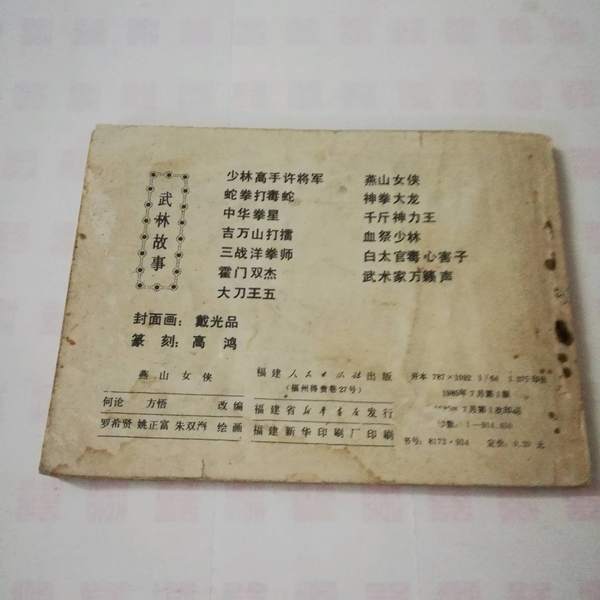 武林故事
少林高手许将军
蛇拳打毒蛇
中华拳星
吉万山打擂
三战洋拳师
霍门双杰
大刀王五
燕山女侠
神拳大龙
千斤神力王
血祭少林
白太官毒心害子
武术家万籁声
封面画：戴光品
篆 刻：高 鸿
燕山女侠
何论 方悟 改编
罗希贤 姚正富 朱双海 绘画
福建人民出版社出版
（福州得贵巷27号）
福建省新华书店发行
福建新华印刷厂印刷
开本 787×1092 1/64 印张
1985年7月第1版
年7月第1次印刷
书号：8173·954 定价：0.20 元